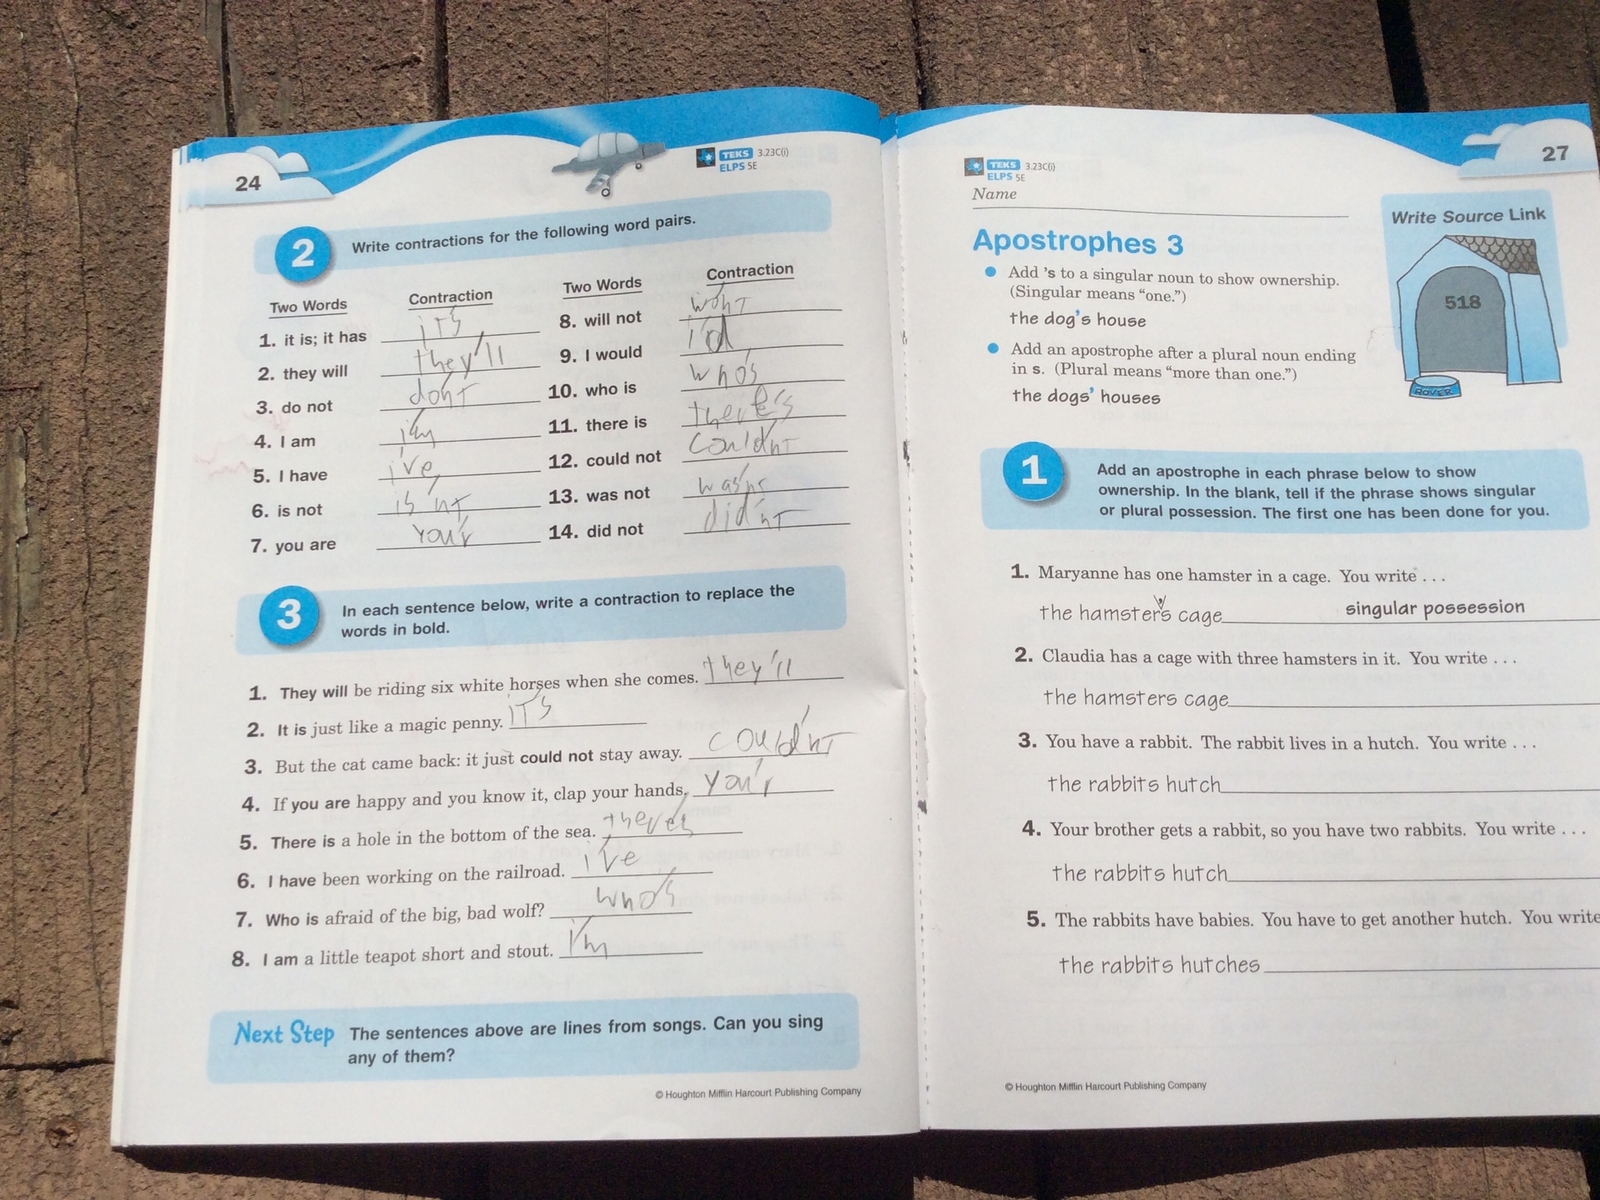 24
TEKS 3.23C(i)
ELPS 5E
2 Write contractions for the following word pairs.
Two Words Contraction Two Words Contraction
1. it is; it has it's 8. will not won't
2. they will they'll 9. I would i'd
3. do not don't 10. who is who's
4. I am i'm 11. there is there's
5. I have i've 12. could not could'nt
6. is not is'nt 13. was not was'nt
7. you are you'r 14. did not did'nt
3 In each sentence below, write a contraction to replace the
words in bold.
1. They will be riding six white horses when she comes. they'll
2. It is just like a magic penny. it's
3. But the cat came back: it just could not stay away. could'nt
4. If you are happy and you know it, clap your hands. you'r
5. There is a hole in the bottom of the sea.
6. I have been working on the railroad. i've
7. Who is afraid of the big, bad wolf? who's
8. I am a little teapot short and stout. I'm
Next Step The sentences above are lines from songs. Can you sing
any of them?
© Houghton Mifflin Harcourt Publishing Company
27
TEKS 3.23C(i)
ELPS 5E
Name
Write Source Link
518
ROVER
Apostrophes 3
• Add 's to a singular noun to show ownership.
(Singular means “one.”)
the dog's house
• Add an apostrophe after a plural noun ending
in s. (Plural means “more than one.”)
the dogs' houses
1 Add an apostrophe in each phrase below to show
ownership. In the blank, tell if the phrase shows singular
or plural possession. The first one has been done for you.
1. Maryanne has one hamster in a cage. You write . . .
the hamster's cage singular possession
2. Claudia has a cage with three hamsters in it. You write . . .
the hamsters cage
3. You have a rabbit. The rabbit lives in a hutch. You write . . .
the rabbits hutch
4. Your brother gets a rabbit, so you have two rabbits. You write . . .
the rabbits hutch
5. The rabbits have babies. You have to get another hutch. You write
the rabbits hutches
© Houghton Mifflin Harcourt Publishing Company